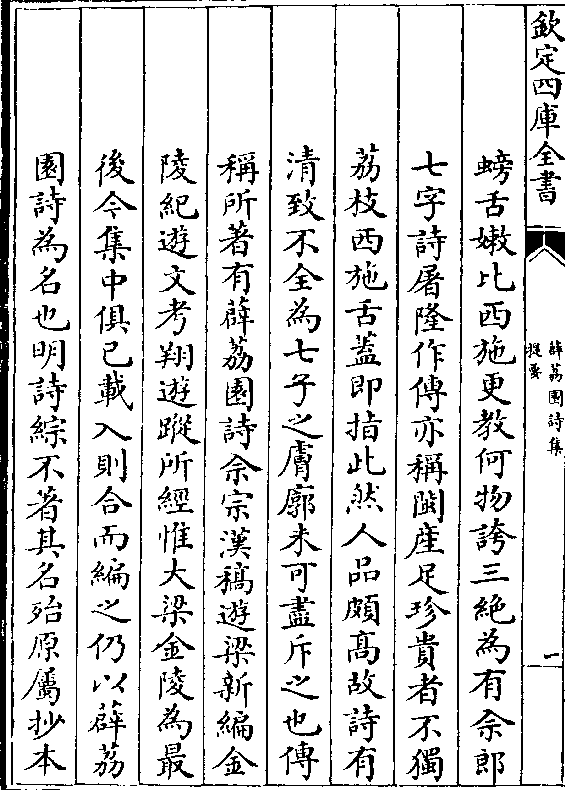 欽定四庫全書
薜荔園詩集
提要
一
螃舌嫩比西施更教何物誇三絶為有佘郎
七字詩屠隆作傳亦稱閩産足珍貴者不獨
荔枝西施舌蓋即指此然人品頗髙故詩有
清致不全為七子之膚廓未可盡斥之也傳
稱所著有薜荔園詩佘宗漢稿遊梁新編金
陵紀遊文考翔遊蹤所經惟大梁金陵為最
後今集中俱已載入則合而編之仍以薜荔
園詩為名也明詩綜不著其名殆原屬抄本